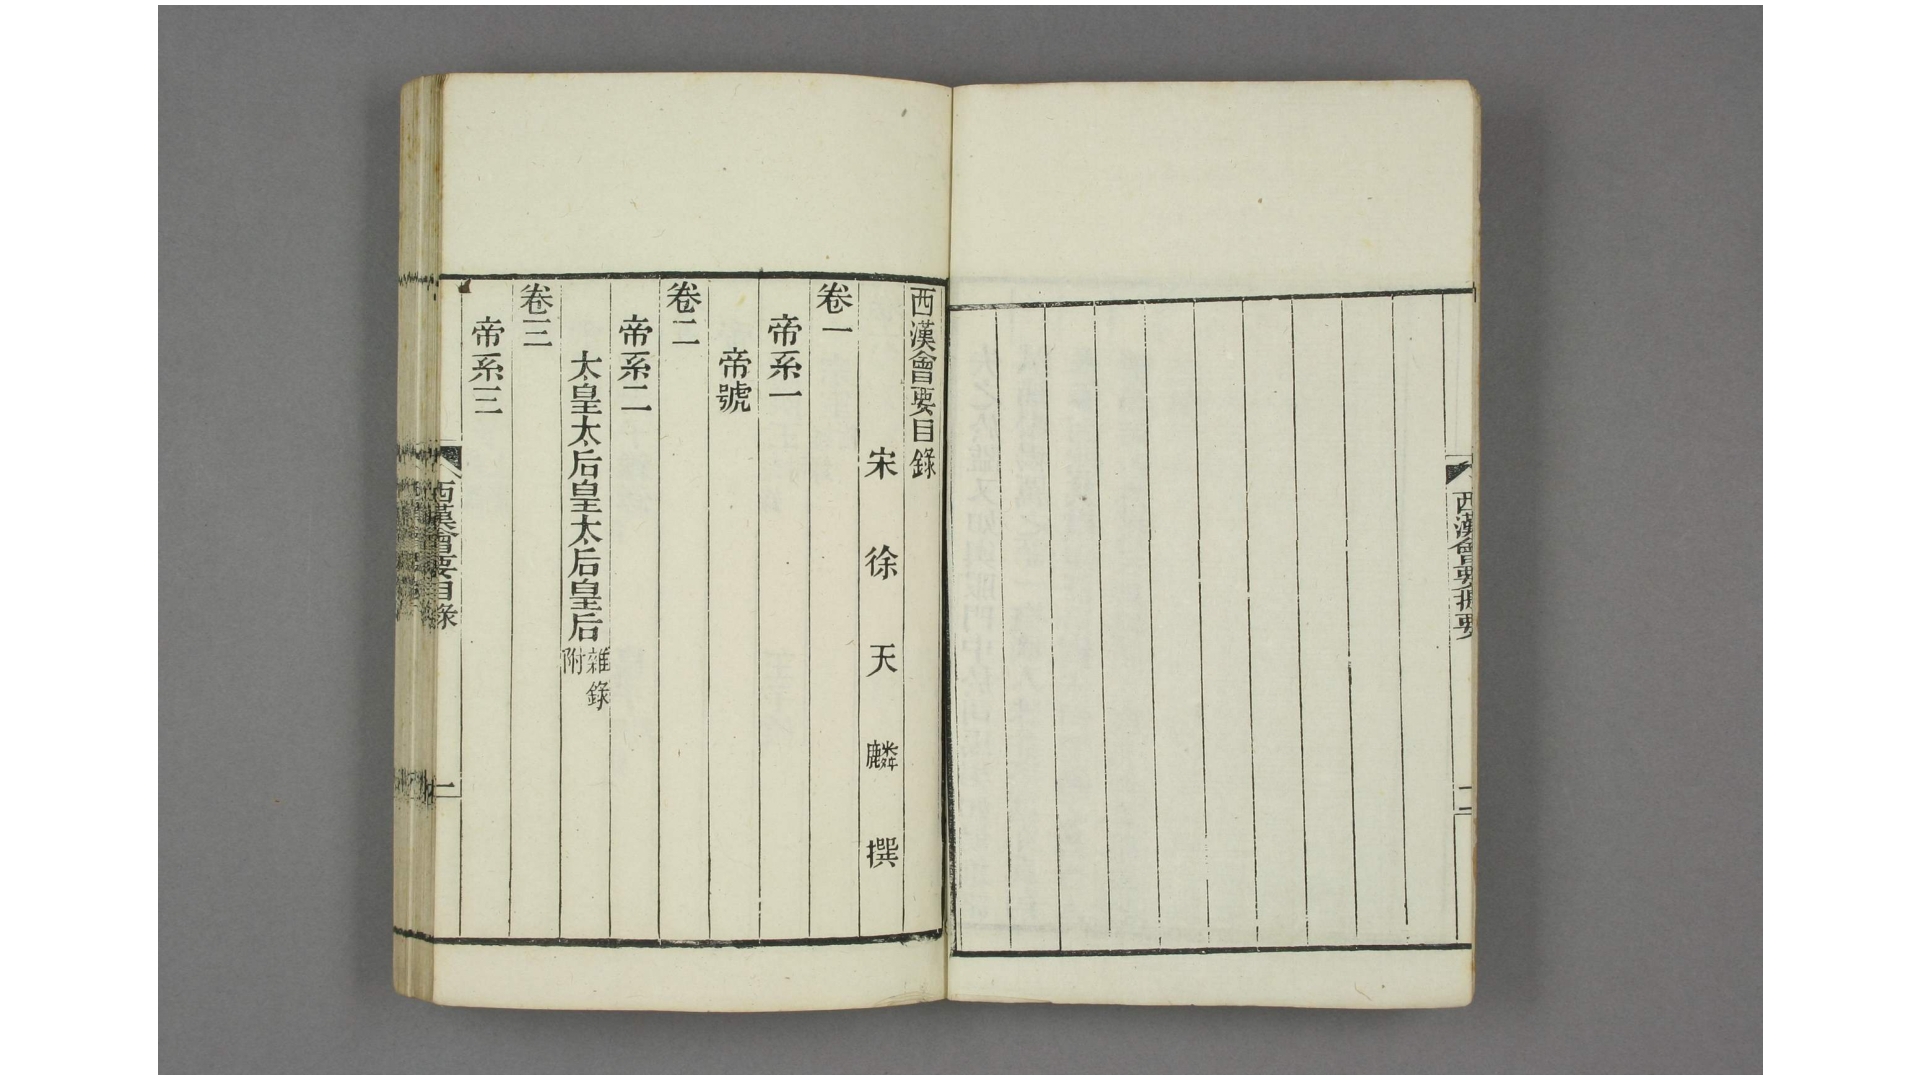 西漢會要提要
二
西漢會要目錄
宋徐天麟撰
卷一
帝系一
帝號
卷二
帝系二
太皇太后皇太后皇后雜錄附
卷三
帝系三
西漢會要目錄
一